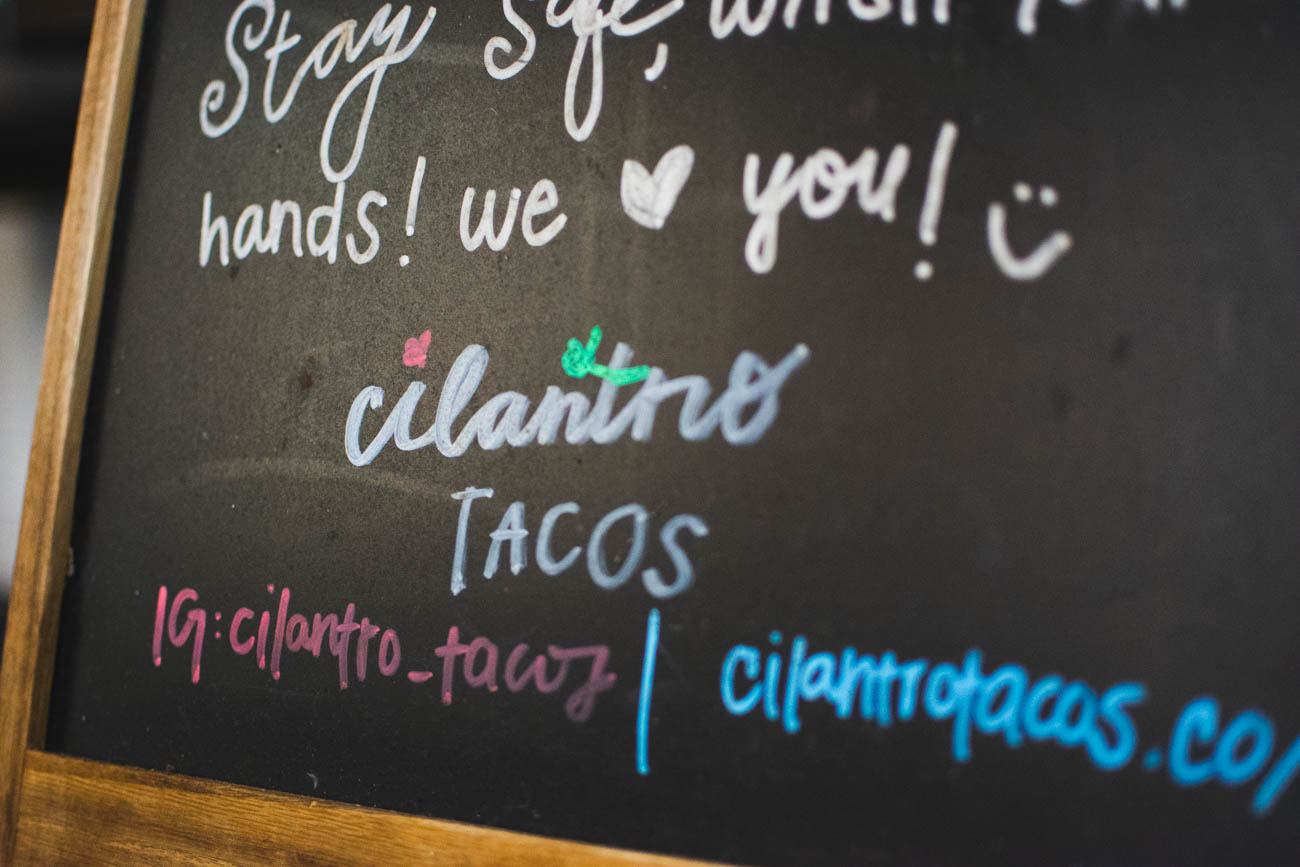 Stay safe, wash your
hands! we ♥ you!
cilantro
TACOS
IG: cilantro_tacos | cilantrotacos.co